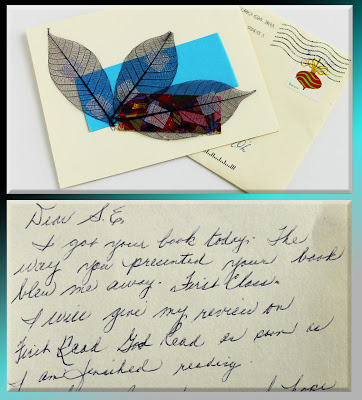 Dear S.E,
I got your book today. The
way you presented your book
blew me away. First Class.
I will give my review on
First Read God Read as soon as
I am finished reading.
I hope